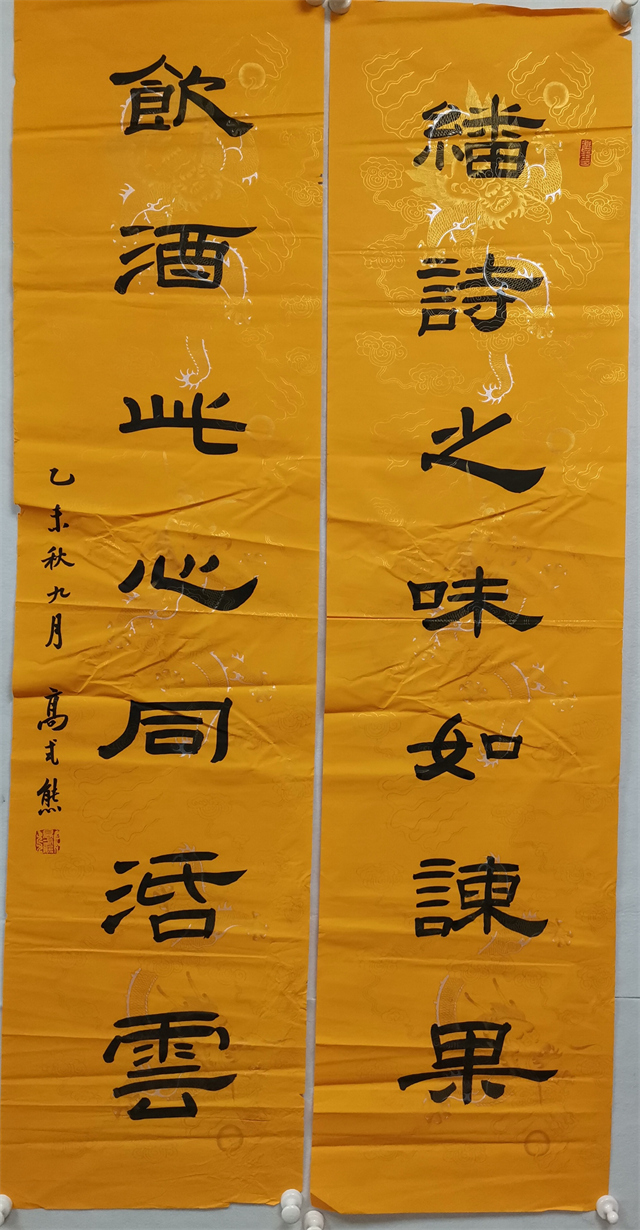 繙詩之味如諫果
飲酒此心同活雲
乙未秋九月 高式熊